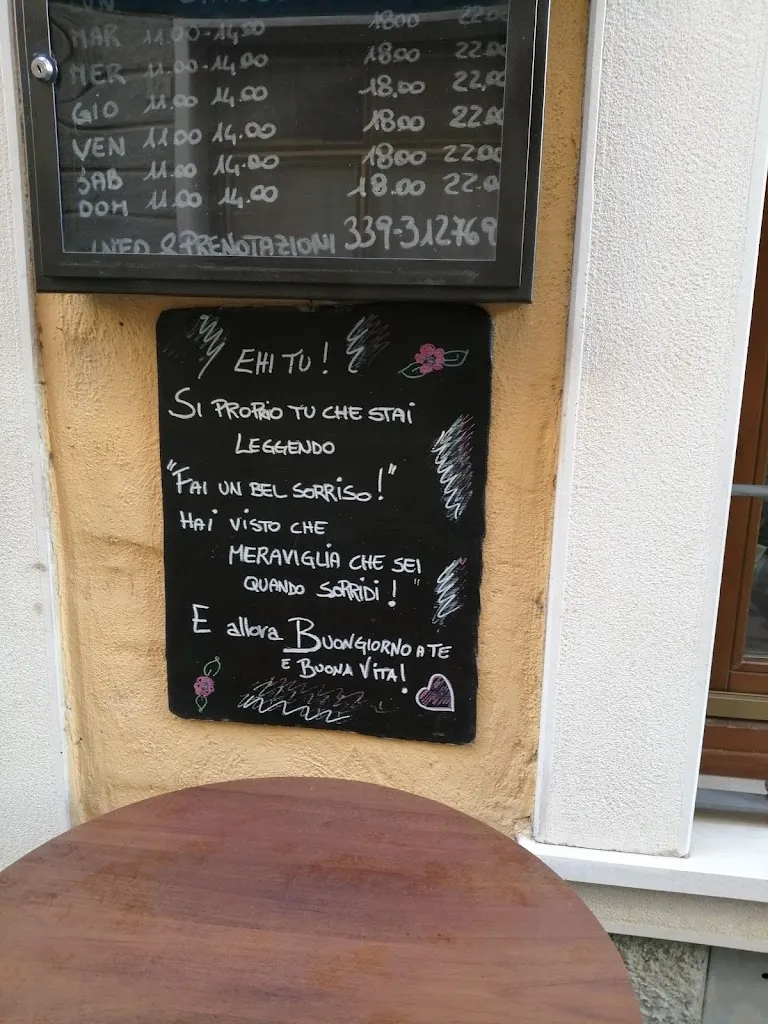 LUN
MAR 11.00-14,00 1800 22.00
MER 11.00-14.00 1800 22.00
GIO 11.00 14.00 18.00 22,00
VEN 11.00 14.00 18.00 22.00
SAB 11.00 14.00 1800 22.00
DOM 11.00 14.00 18.00 22.0
INFO & PRENOTAZIONI 339-312769
EHI TU!
SI PROPRIO TU CHE STAI
LEGGENDO
"FAI UN BEL SORRISO!"
HAI VISTO CHE
MERAVIGLIA CHE SEI
QUANDO SORRIDI! "
E allora BUONGIORNO A TE
E BUONA VITA!